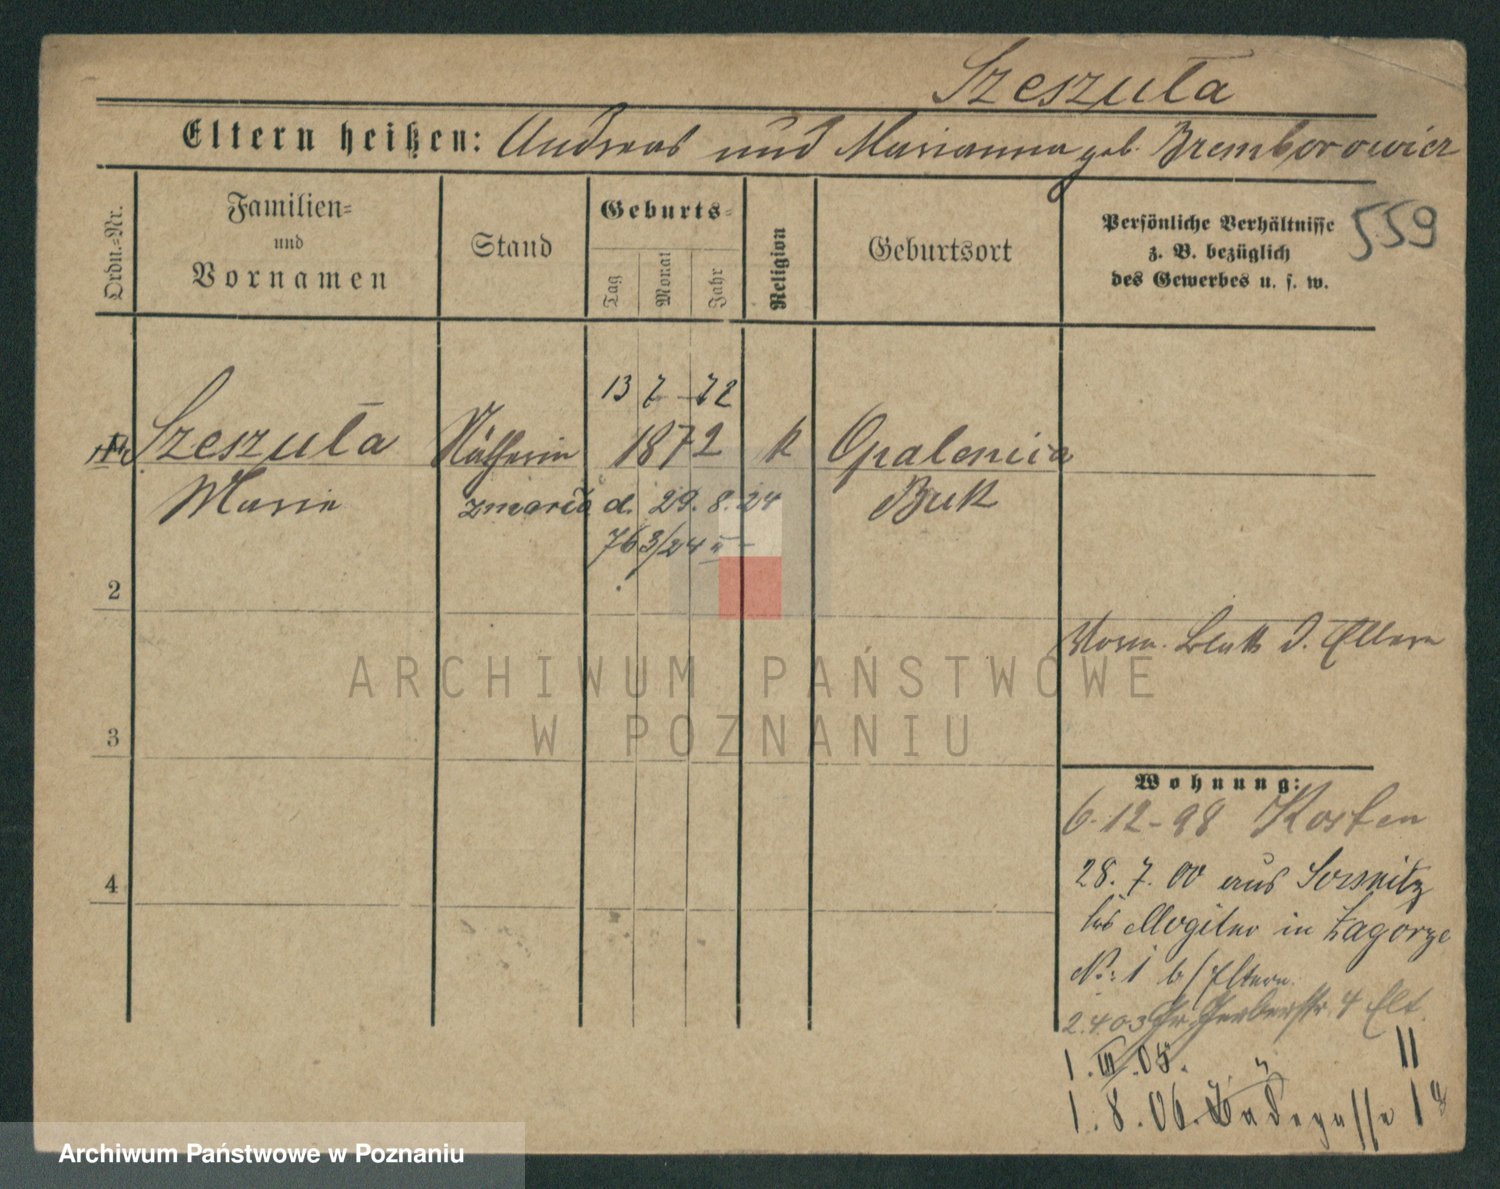 Szeszuła
Eltern heißen: Andreas und Marianna geb. Bremborowicz
Ordn.=Nr.
Familien=
und
Vornamen
Stand
Geburts=
Tag
Monat
Jahr
Religion
Geburtsort
Persönliche Verhältnisse
z. B. bezüglich
des Gewerbes u. s. w.
559
13 7 - 72
Szeszuła Nätherin 1872 k Opalenica
Marie zmarła d. 29. 8. 24 Buk
763/24
2
Eltern
3
Wohnung:
6-12-98 Kosten
28. 7. 00 aus Sosnitz
4
bis Mogilno in Zagorze
No: 1 b/Eltern
2.4.03 Gr. Gerberstr. 4 Elt.
1. III. 05. " 11
1. 8. 06. Badegasse 1
ARCHIWUM PAŃSTWOWE
W POZNANIU
Archiwum Państwowe w Poznaniu